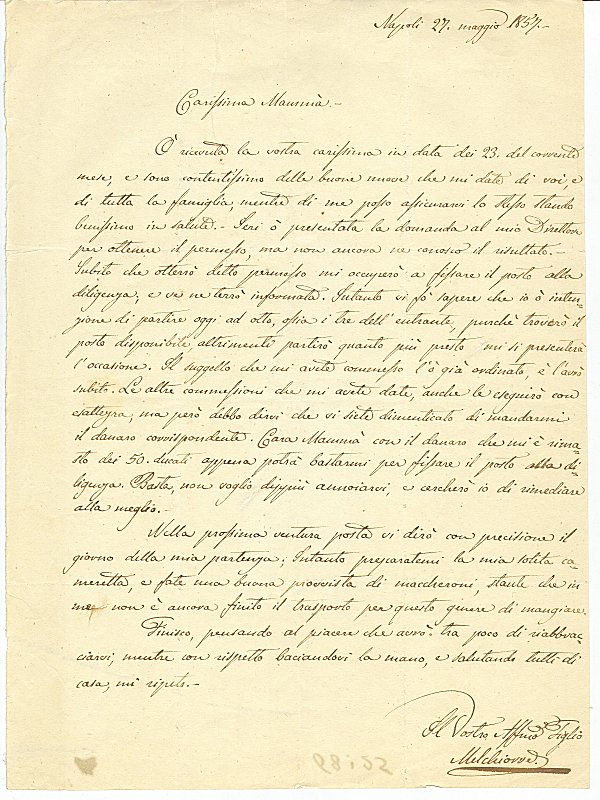 Napoli 27. maggio 1857.-
Carissima Mammà.-
Ò ricevuta la vostra carissima in data dei 23. del corrente
mese, e sono contentissimo delle buone nuove che mi date di voi, e
di tutta la famiglia, mentre di me posso assicurarvi lo stesso stando
benissimo in salute.- Ieri ò presentata la domanda al mio Direttore
per ottenere il permesso, ma non ancora ne conosco il risultato.-
Subito che otterrò detto permesso mi occuperò a fissare il posto alla
diligenza, e ve ne terrò informata. Intanto vi fò sapere che io ò inten-
zione di partire oggi ad otto, ossia i tre dell'entrante, purchè troverò il
posto disponibile, altrimenti partirò quanto più presto mi si presenterà
l'occasione. Il suggello che mi avete commesso l'ò già ordinato, e l'avrò
subito. Le altre commessioni che mi avete date, anche le eseguirò con
esattezza, ma però debbo dirvi che vi siete dimenticato di mandarmi
il danaro corrispondente. Cara Mammà con il danaro che mi è rima-
sto dei 50. ducati appena potrà bastarmi per fissare il posto alla di-
ligenza. Basta, non voglio dippiù annoiarvi, e cercherò io di rimediare
alla meglio.-
Nella prossima ventura posta vi dirò con precisione il
giorno della mia partenza; Intanto preparatemi la mia solita ca-
meretta, e fate una buona provvista di maccheroni, stante che in
me non è ancora finito il trasporto per questo genere di mangiare.
Finisco, pensando al piacere che avrò tra poco di riabbrac-
ciarvi, mentre con rispetto baciandovi la mano, e salutando tutti di
casa, mi ripeto.-
Il Vostro Affmo Figlio
Melchiorre.